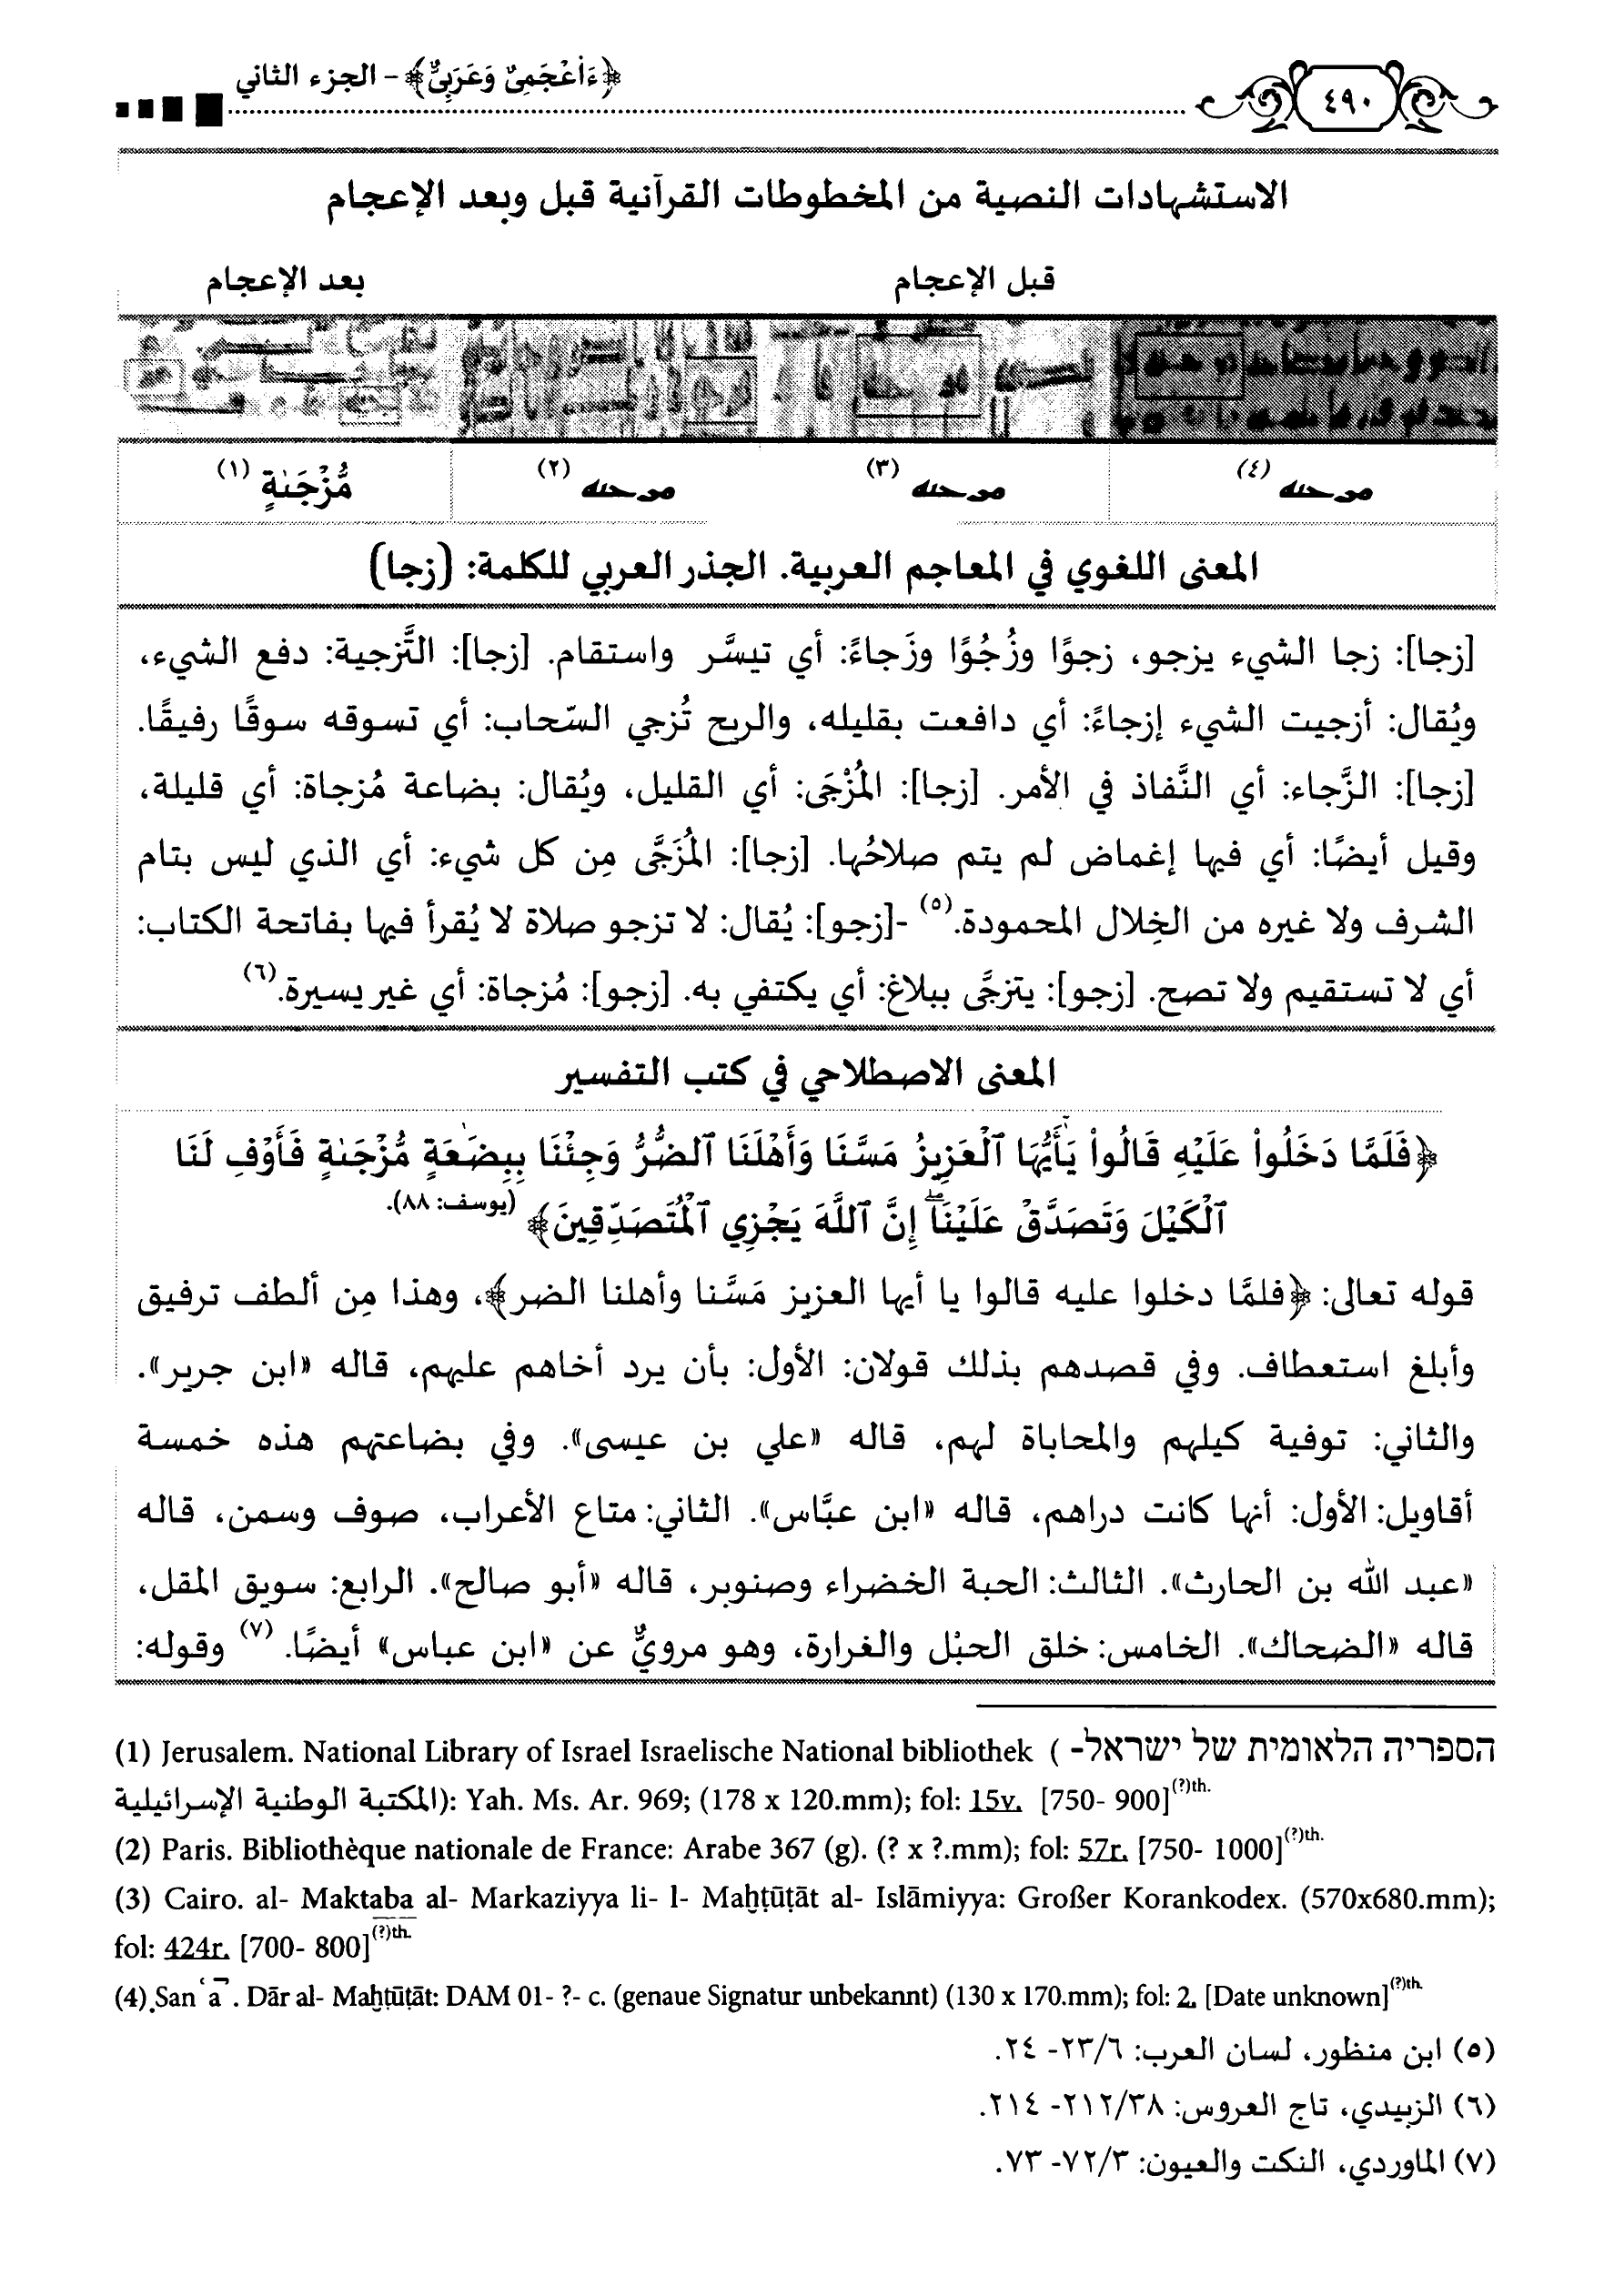 ﴿ءَا۬عْجَمِىٌّ وَعَرَبِىٌّ﴾ – الجزء الثاني
٤٩٠
الاستشهادات النصية من المخطوطات القرآنية قبل وبعد الإعجام
قبل الإعجام
بعد الإعجام
(٤)
(٣)
(٢)
مُّزْجَىٰةٍ (١)
المعنى اللغوي في المعاجم العربية. الجذر العربي للكلمة: (زجا)
[زجا]: زجا الشيء يزجو، زجوًا وزُجُوًا وزَجاءً: أي تيسَّر واستقام. [زجا]: التَّزجية: دفع الشيء،
ويُقال: أزجيت الشيء إزجاءً: أي دافعت بقليله، والريح تُزجي السّحاب: أي تسوقه سوقًا رفيقًا.
[زجا]: الزَّجاء: أي النَّفاذ في الأمر. [زجا]: المُزْجَى: أي القليل، ويُقال: بضاعة مُزجاة: أي قليلة،
وقيل أيضًا: أي فيها إغماض لم يتم صلاحُها. [زجا]: المُزَجَّى مِن كل شيء: أي الذي ليس بتام
الشرف ولا غيره من الخِلال المحمودة.(٥) -[زجو]: يُقال: لا تزجو صلاة لا يُقرأ فيها بفاتحة الكتاب:
أي لا تستقيم ولا تصح. [زجو]: يتزجَّى ببلاغ: أي يكتفي به. [زجو]: مُزجاة: أي غير يسيرة.(٦)
المعنى الاصطلاحي في كتب التفسير
﴿فَلَمَّا دَخَلُوا۟ عَلَيْهِ قَالُوا۟ يَٰٓأَيُّهَا ٱلْعَزِيزُ مَسَّنَا وَأَهْلَنَا ٱلضُّرُّ وَجِئْنَا بِبِضَٰعَةٍ مُّزْجَىٰةٍ فَأَوْفِ لَنَا
ٱلْكَيْلَ وَتَصَدَّقْ عَلَيْنَآ ۖ إِنَّ ٱللَّهَ يَجْزِي ٱلْمُتَصَدِّقِينَ﴾ (يوسف: ٨٨).
قوله تعالى: ﴿فلمَّا دخلوا عليه قالوا يا أيها العزيز مَسَّنا وأهلنا الضر﴾، وهذا مِن ألطف ترفيق
وأبلغ استعطاف. وفي قصدهم بذلك قولان: الأول: بأن يرد أخاهم عليهم، قاله «ابن جرير».
والثاني: توفية كيلهم والمحاباة لهم، قاله «علي بن عيسى». وفي بضاعتهم هذه خمسة
أقاويل: الأول: أنها كانت دراهم، قاله «ابن عبَّاس». الثاني: متاع الأعراب، صوف وسمن، قاله
«عبد الله بن الحارث». الثالث: الحبة الخضراء وصنوبر، قاله «أبو صالح». الرابع: سويق المقل،
قاله «الضحاك». الخامس: خلق الحبْل والغرارة، وهو مرويٌّ عن «ابن عباس» أيضًا.(٧) وقوله:
(1) Jerusalem. National Library of Israel Israelische National bibliothek ( הספריה הלאומית של ישראל-
المكتبة الوطنية الإسرائيلية): Yah. Ms. Ar. 969; (178 x 120.mm); fol: 15v. [750- 900](?)th.
(2) Paris. Bibliothèque nationale de France: Arabe 367 (g). (? x ?.mm); fol: 57r. [750- 1000](?)th.
(3) Cairo. al- Maktaba al- Markaziyya li- l- Maḫṭūṭāt al- Islāmiyya: Großer Korankodex. (570x680.mm);
fol: 424r. [700- 800](?)th.
(4) Sanʿāʾ. Dār al- Maḫṭūṭāt: DAM 01- ?- c. (genaue Signatur unbekannt) (130 x 170.mm); fol: 2. [Date unknown](?)th.
(٥) ابن منظور، لسان العرب: ٢٣/٦- ٢٤.
(٦) الزبيدي، تاج العروس: ٢١٢/٣٨- ٢١٤.
(٧) الماوردي، النكت والعيون: ٧٢/٣- ٧٣.